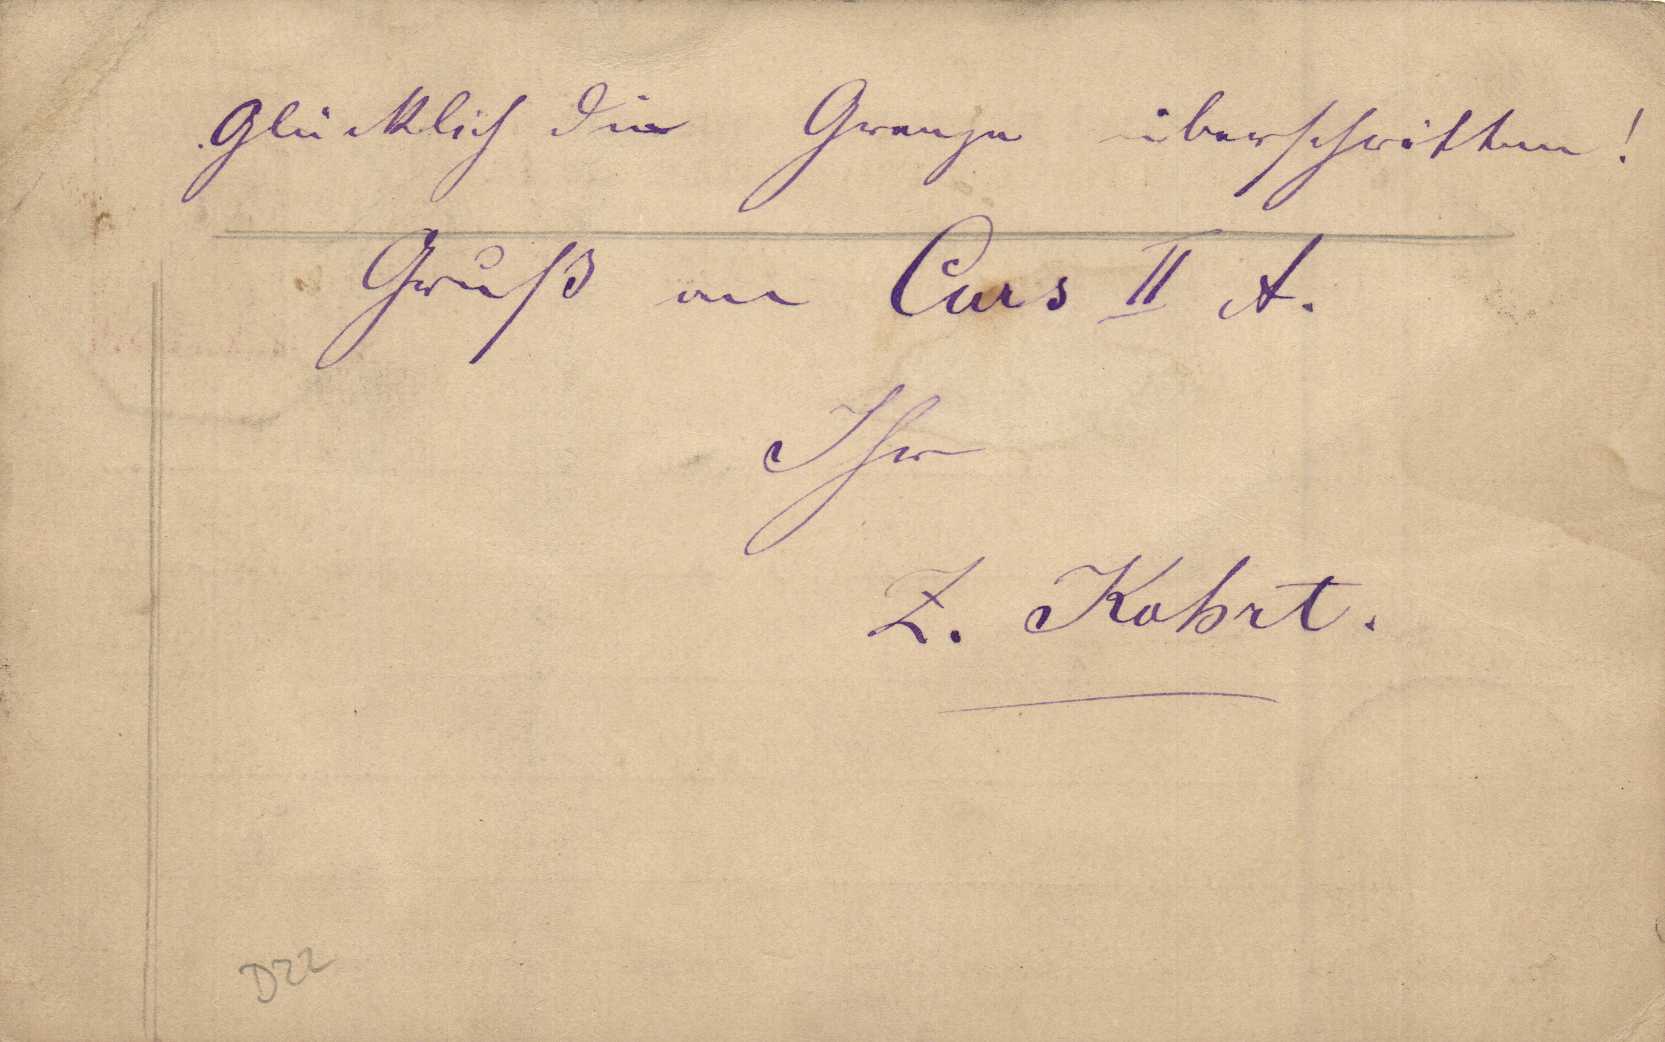 Glücklich die Grenze überschritten!
Gruß an Curs II A.
Ihr
Z. Kohrt.
D22